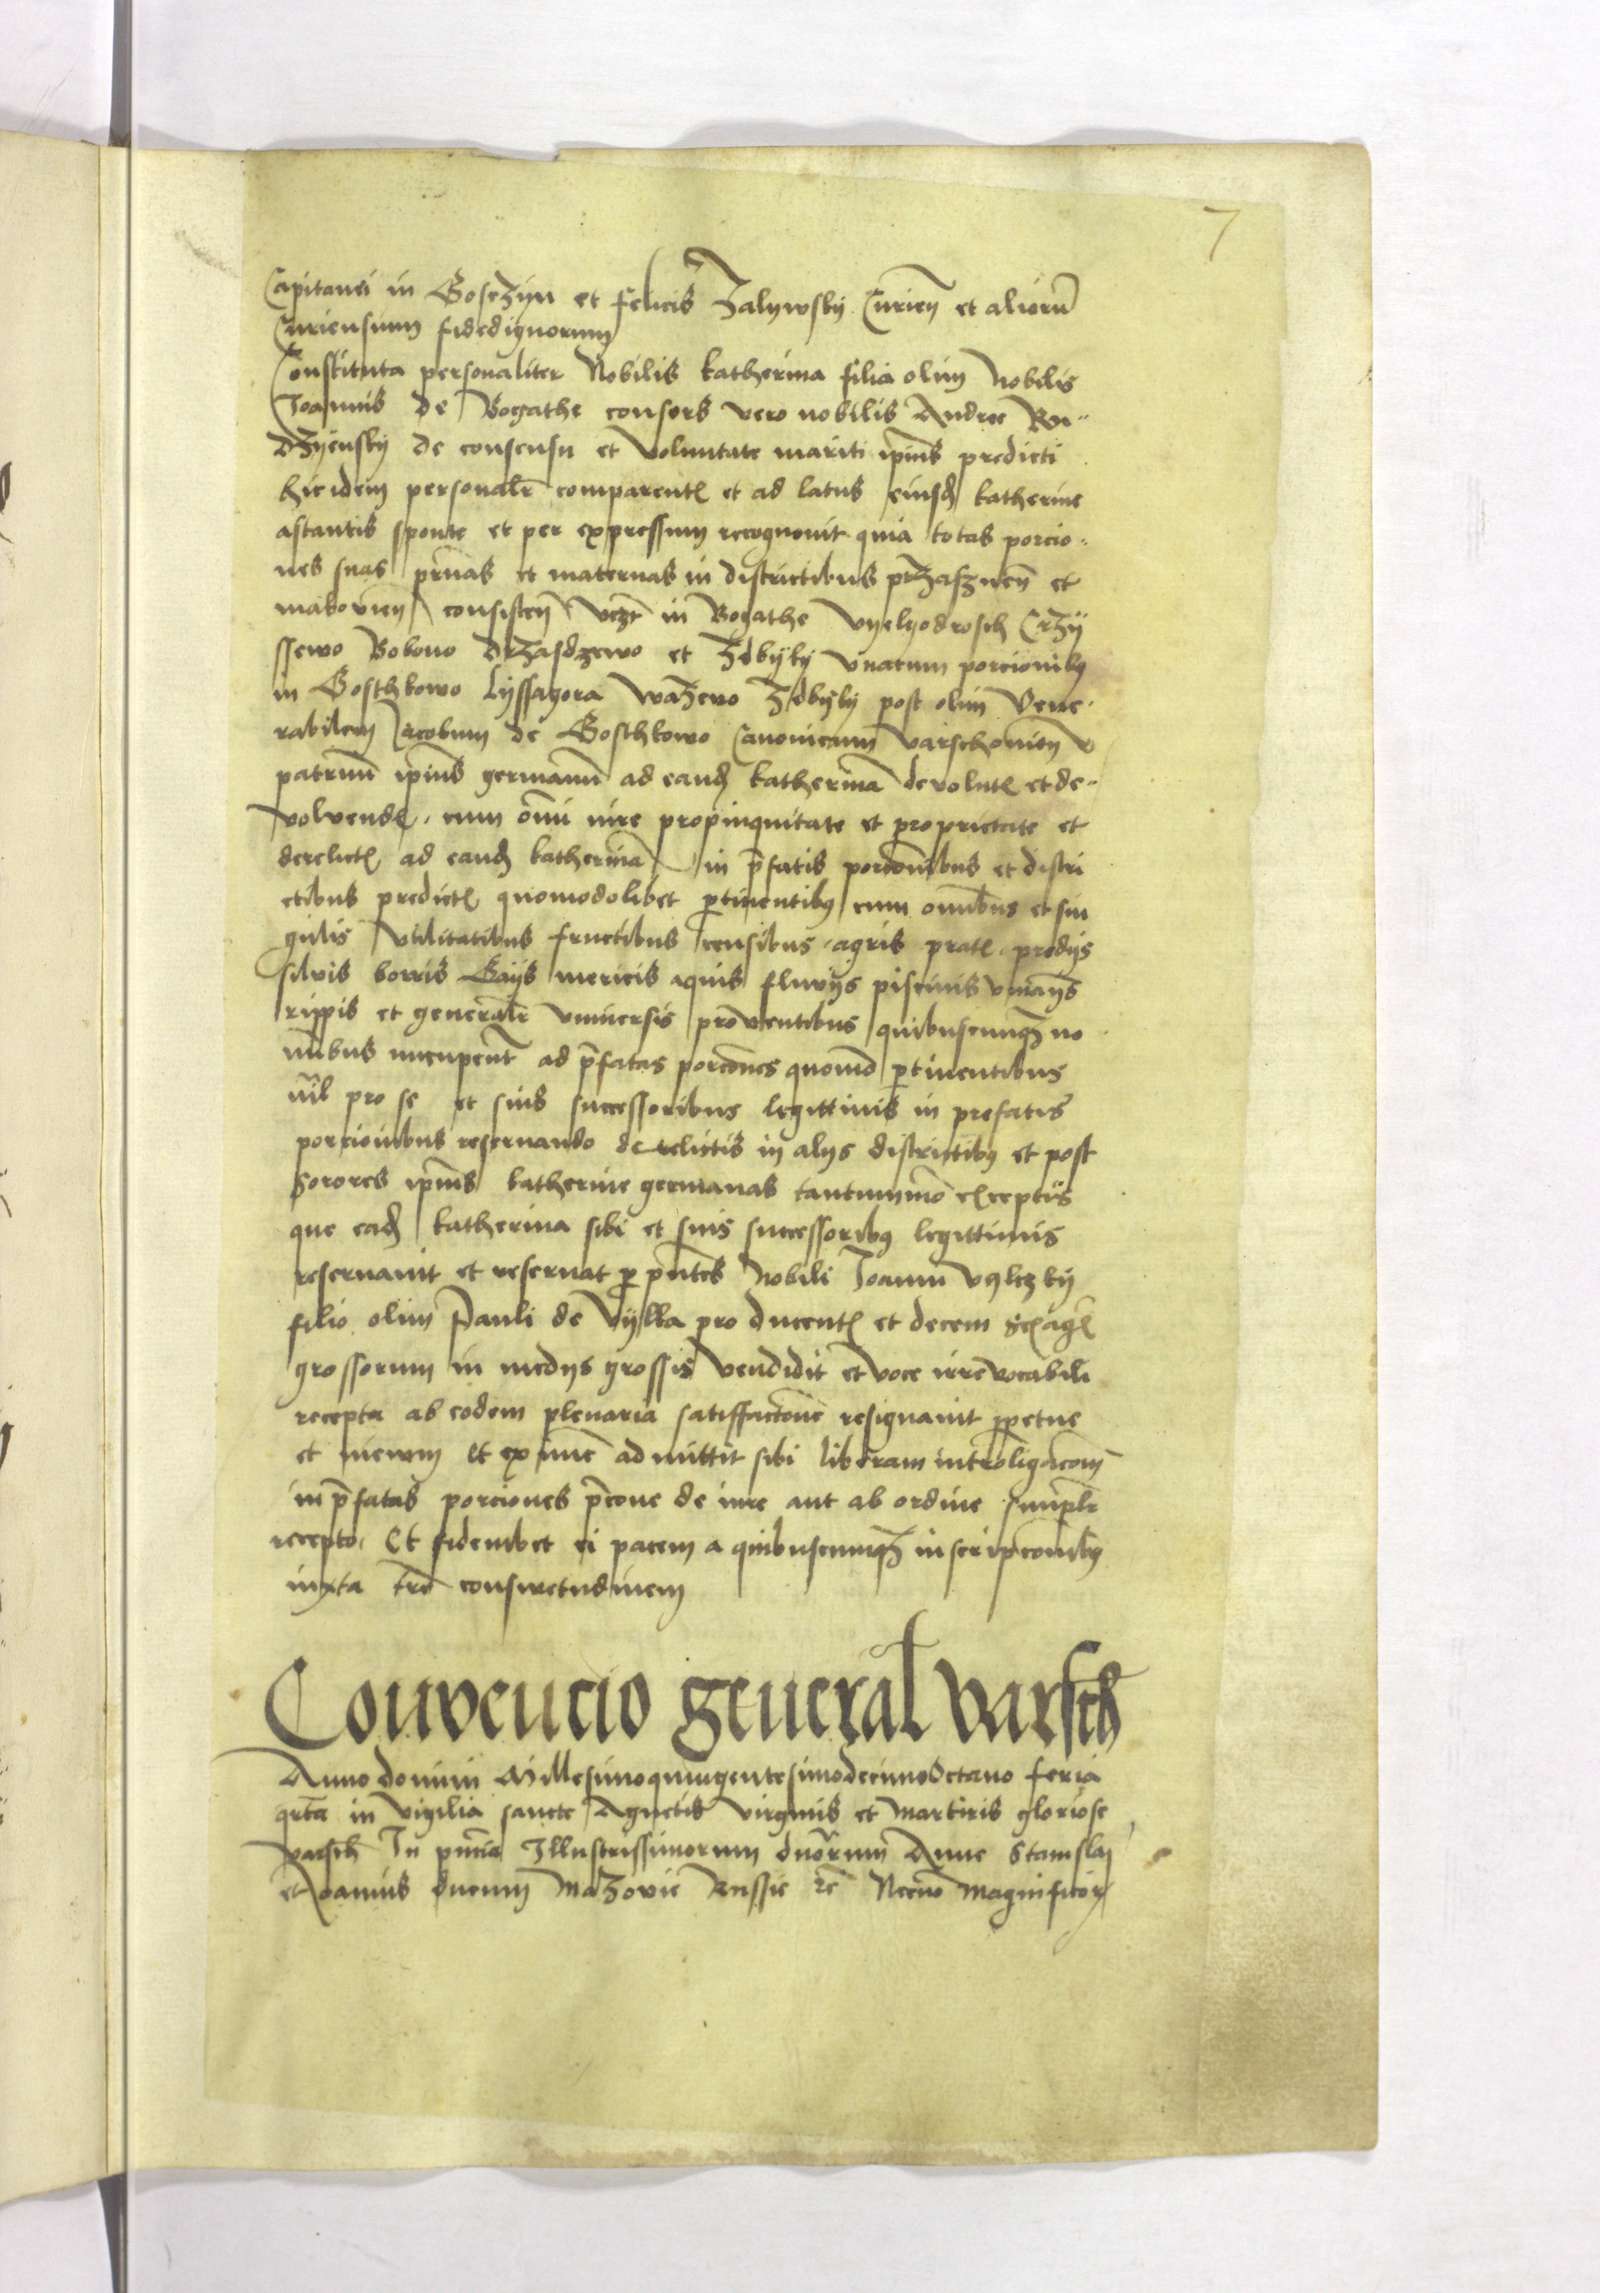 7
Capitanei in Goseżÿn et felicis Zalywskÿ Curien̄ et aliorū
Curiensium fidedignorum
Constituta personaliter Nobilis katherina filia olim Nobilis
Joannis de Bogathe consors vero nobilis Andree Ru-
dzÿenskÿ de consensu et voluntate mariti ip̄ius predicti
hic idem personalr̄ comparent̄ et ad latus eiusd̄ katherine
astantis sponte et per expressum recognouit quia totas porcio-
nes suas pr̄nas et maternas in districtibus prżasznen̄ et
makovien̄ consisten̄ vczt̄ in Bogathe vyelyodrosch Crzÿ
ssewo Bobovo Drzasdzewo et Zdbÿkÿ vnacum porcionibꝰ
in Gosthkowo Lÿssagora wazewo Zdbÿkÿ post olim Vene-
rabilem Jacobum de Gosthkowo Canonicum varschovien̄
patruū ip̄ius germanū ad eand̄ katherinā devolut̄ et de-
volvend̄ cum om̄i iure propinquitate et proprietate et
derelict̄ ad eand̄ katherinā in p̄fatis porcōnibus et distri
ctibus predict̄ quomodolibet ꝑtinentibꝰ cum omībus et sin
gulis vtilitatibus fructibus censibus agris prat̄ predÿs
siluis borris Gaÿs mericis aquis fluvÿs piscinis vmaÿs
rippis et generalr̄ vniuersis prouentibus quibuscunqꝫ no
mībus nucupent̄ ad p̄fatas porcōnes quomō ꝑtinentibus
nīl pro se et suis successoribus legittimis in prefatis
porcionibus reseruando derelictis in alÿs districtibꝰ et post
sorores ip̄ius katherine germanas tantummō exceptis
que ead̄ katherina sibi et suis successoribꝰ legittimis
reseruauit et reseruat ꝑ pn̄tes Nobili Joanni vylczkÿ
filio olim Pauli de Vÿlka pro ducent̄ et decem sexaḡ
grossorum in medÿs grossis vendidit et voce irreuocabili
recepta ab eodem plenaria satisfactōne resignauit ꝑpetue
et inewm Et ex nūc admittit sibi liberam introligacōm
in p̄fatas porciones p̄cone de iure aut ab ordine simplr̄
recepto Et fideiubet ei pacem a quibuscumqꝫ inscripcōnibꝰ
iuxta tr̄e consuetudinem
Convencio general varsch
Anno domini Millesimoquingentesimodecimooctauo feria
qrta in vigilia sancte Agnetis virginis et martiris gloriose
varsch In pn̄cia Illustrissimorum dn̄orum Anne Stanislai
et Joannis ducum Mazovie Russie zc̄ Necnō Magnificoꝝ